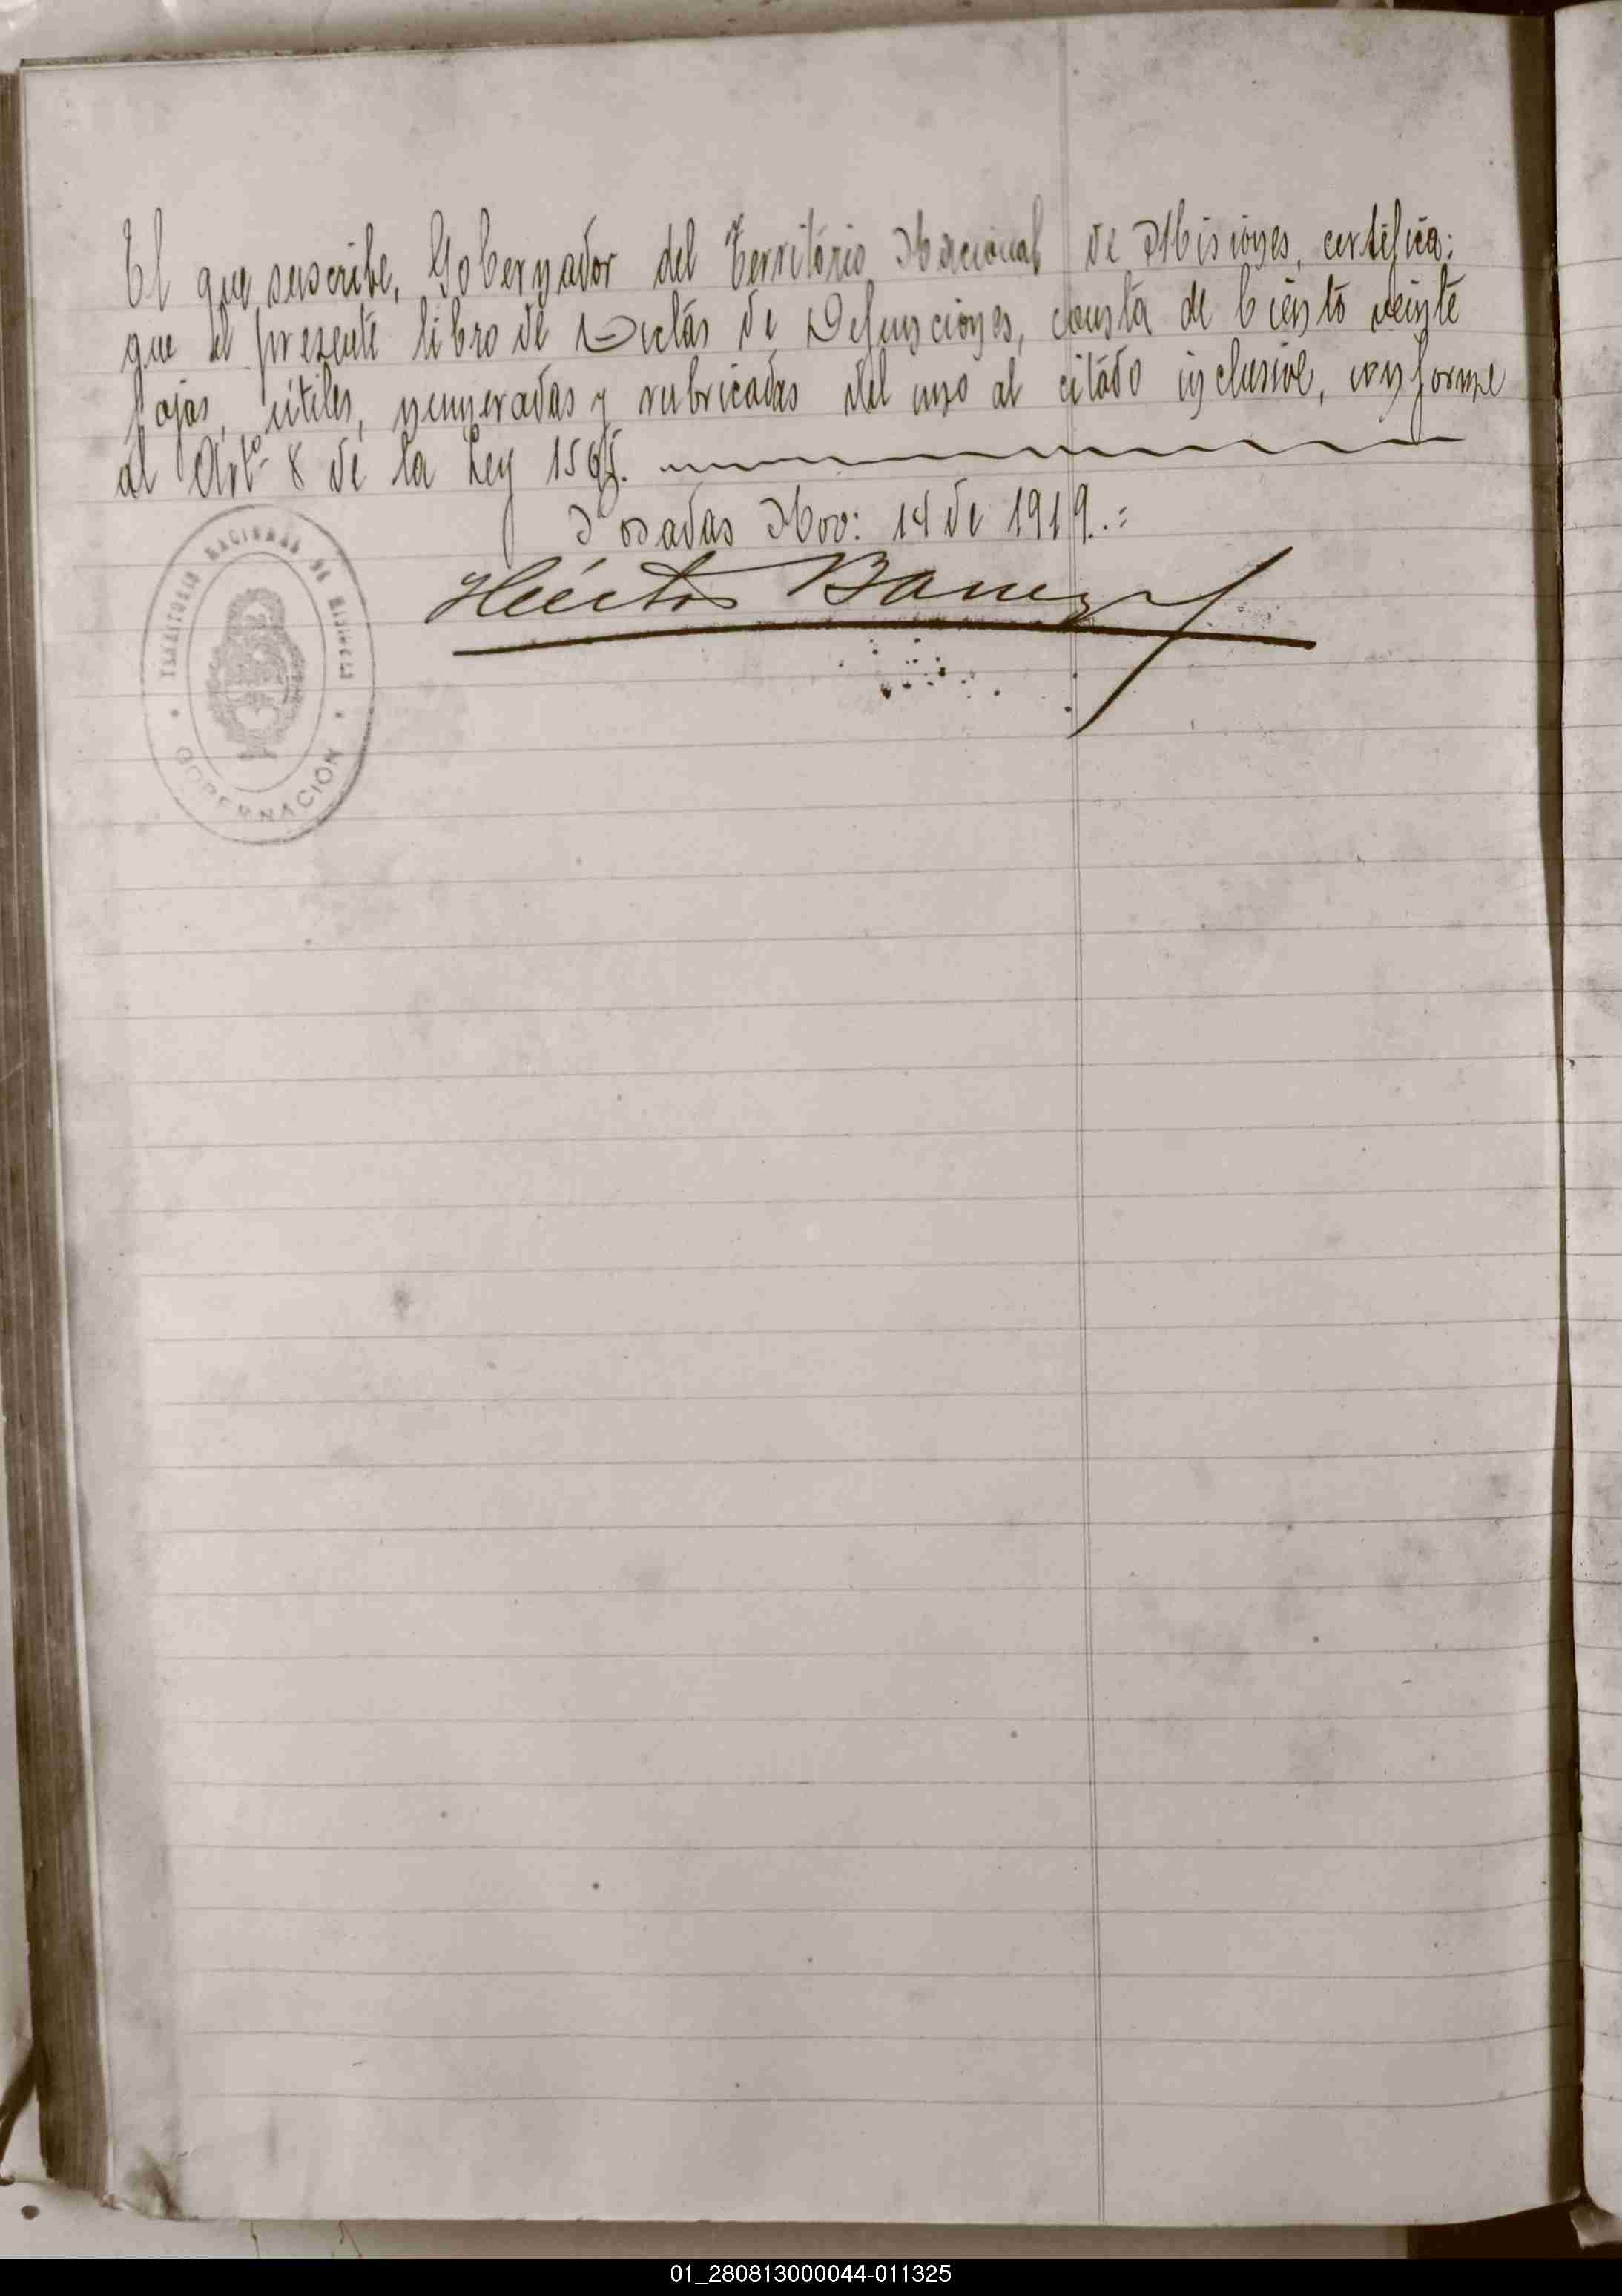 El que suscribe, Gobernador del Território Nacional de Misiones, certifica:
que el presente libro de Actas de Defunciones, consta de ciento veinte
fojas, útiles, numeradas y rubricadas del uno al citado inclusive, conforme
al Artº 8 de la Ley 1565.
Posadas Nov: 14 de 1919.=
Héctor Barreyro
TERRITORIO NACIONAL DE MISIONES
GOBERNACION
01_280813000044-011325